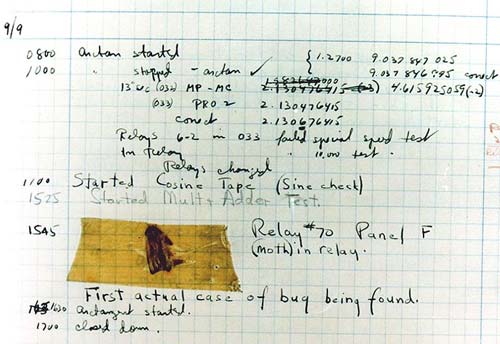 9/9
0800 arctan started { 1.2700 9.037 847 025
1000 " stopped - arctan ✓ 9.037 846 995 correct
13"uc (032) MP - MC 2.130476415 4.615925059(-2)
(033) PRO 2 2.130476415
correct 2.130676415
Relays 6-2 in 033 failed special speed test
In Relay " 10.000 test.
Relays changed
1100 Started Cosine Tape (Sine check)
1525 Started Mult + Adder Test.
1545 Relay #70 Panel F
(moth) in relay.
First actual case of bug being found.
1630 arctangent started.
1700 closed down.